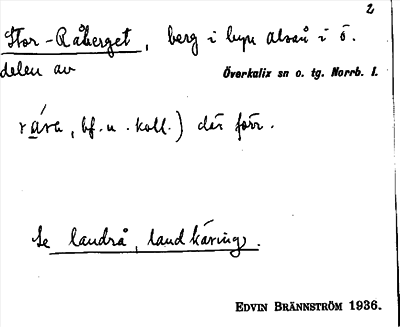 2
Stor-Råberget, berg i byn Alsån i ö.
delen av
Överkalix sn o. tg. Norrb. l.
råra, bf. n. koll.) där förr.
Se landrå, landkäring.
EDVIN BRÄNNSTRÖM 1936.